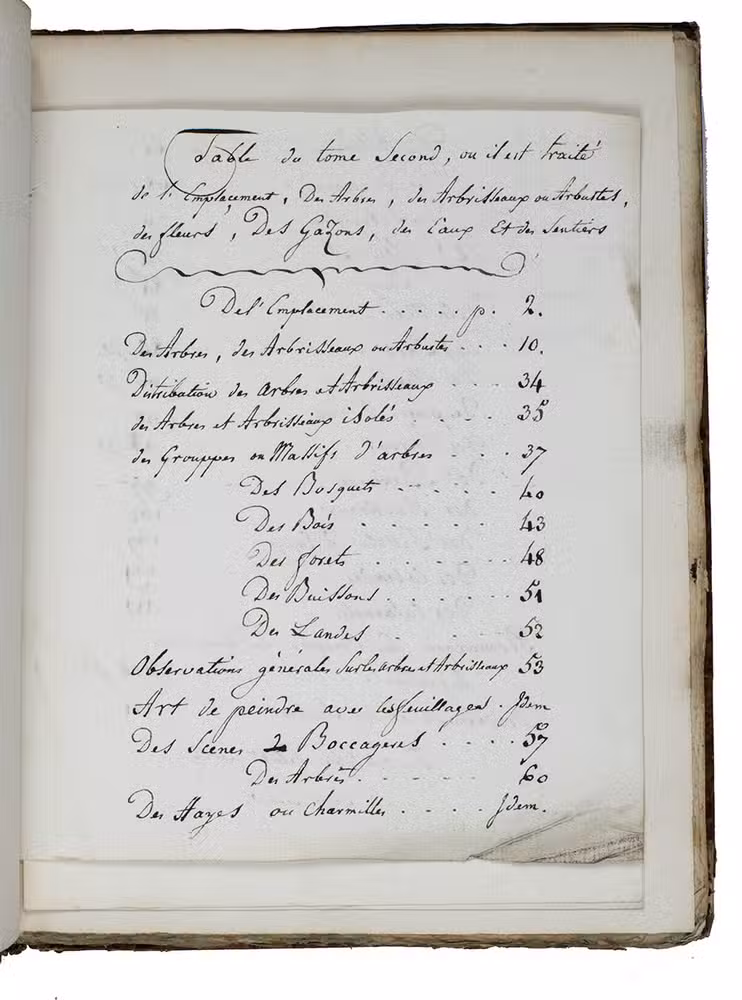 Table du tome Second, ou il est traité
de l'Emplacement, Des Arbres, des Arbrisseaux ou Arbustes,
des fleurs, Des Gazons, des Eaux Et des Sentiers
De l'Emplacement . . . . . p. 2.
Des Arbres, des Arbrisseaux ou Arbustes . . . 10.
Distribution des arbres et Arbrisseaux . . . 34
des Arbres et Arbrisseaux isolés . . . . 35
des Grouppes ou Massifs d'arbres . . . 37
Des Bosquets . . . . . 40
Des Bois . . . . . . 43
Des forets . . . . . . 48
Des Buissons . . . . . 51
Des Landes . . . . . 52
Observations générales sur les arbres et Arbrisseaux 53
Art de peindre avec les feuillages . Idem
Des Scenes Boccageres . . . . 57
Des Arbres . . . . . 60
Des Hayes ou Charmilles . . . . Idem.